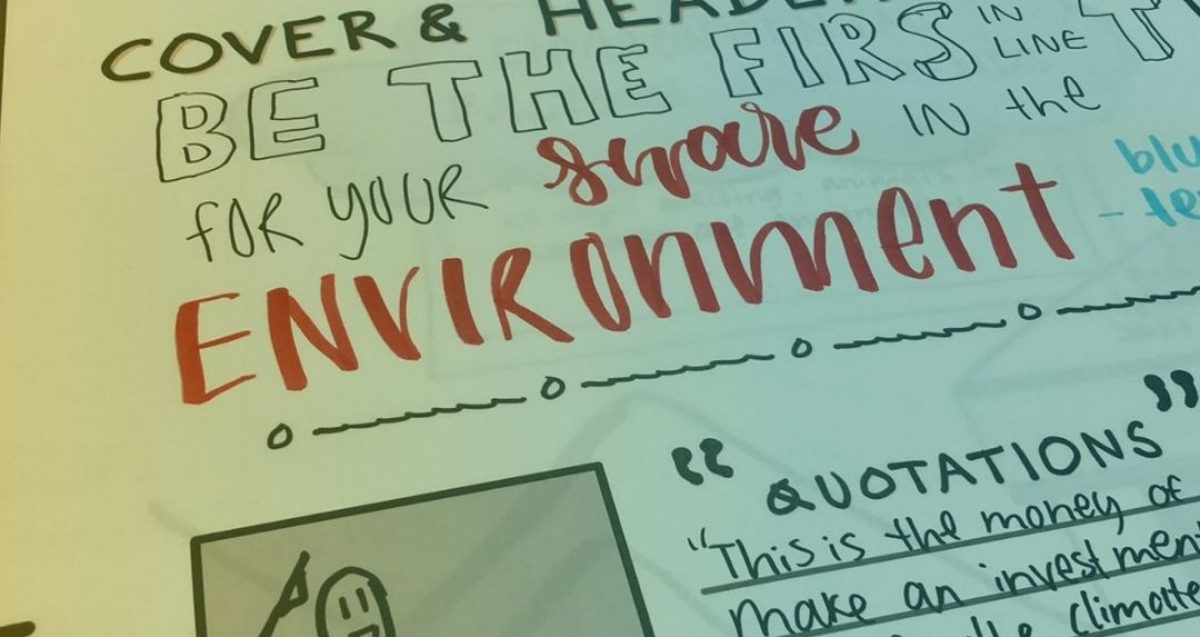 COVER & HEADL
BE THE FIRST IN LINE T
FOR YOUR share IN the
ENVIRONMENT
blu
- te
“ QUOTATIONS ”
"This is the money of
make an investmen
climate